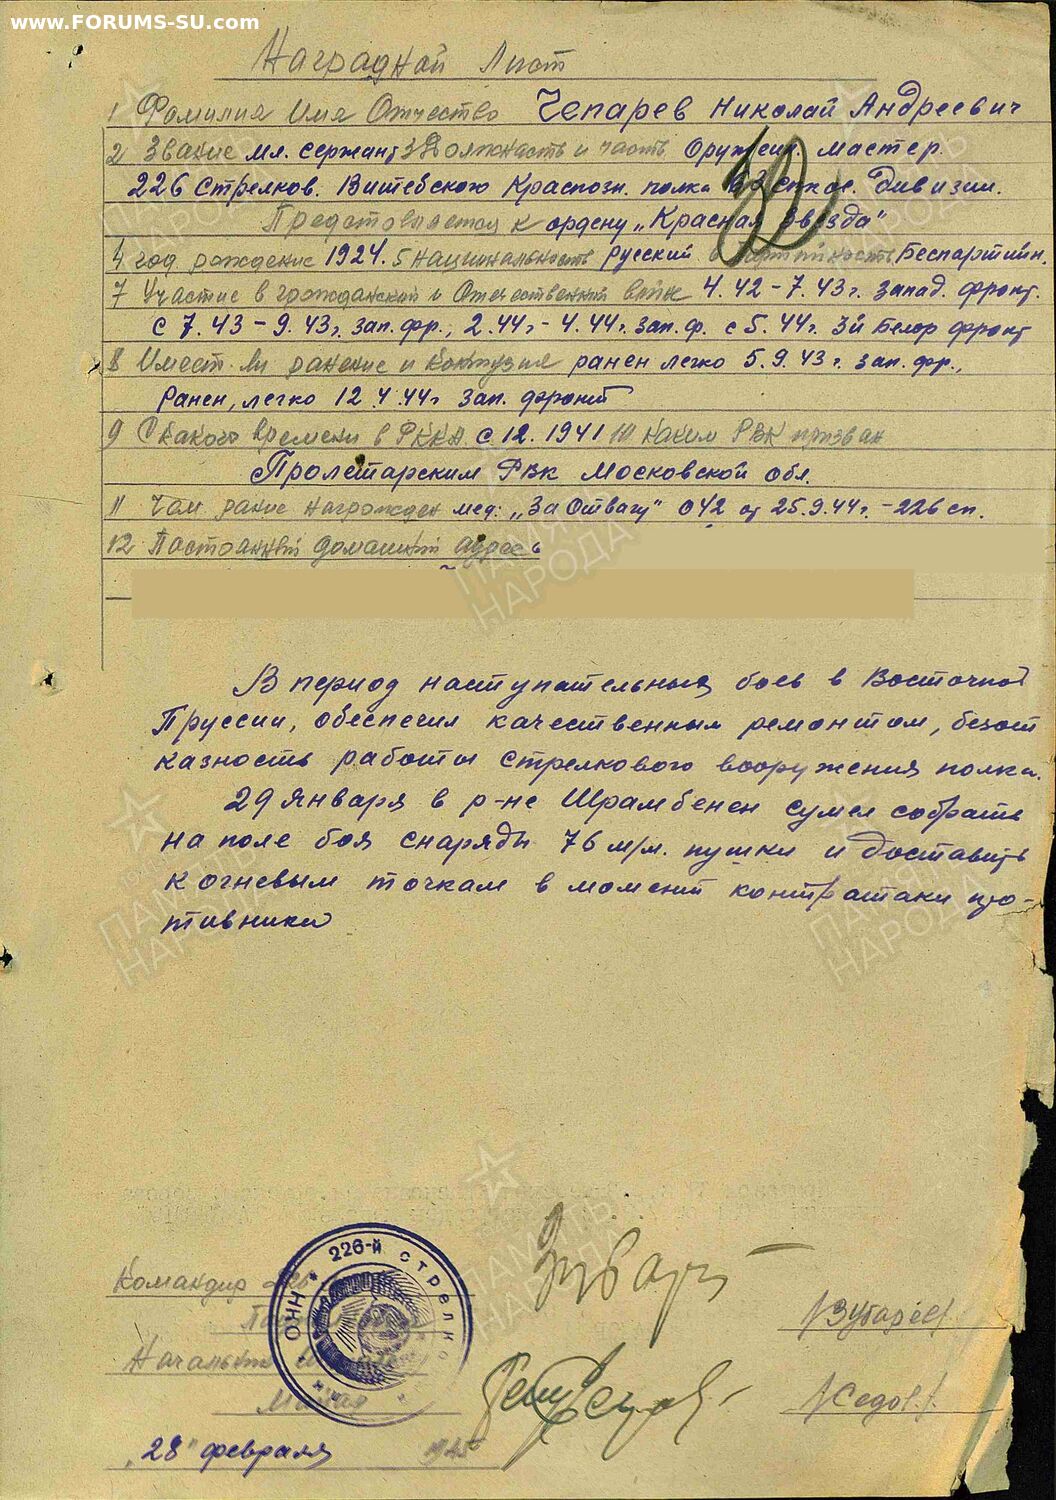 www.FORUMS-SU.com
Наградной Лист
1 Фамилия Имя Отчество Чепарев Николай Андреевич
2 Звание мл. сержант 3 Должность и часть Оружейн. мастер.
226 Стрелков. Витебского Краснозн. полка 63 стрелк. Дивизии.
Представляется к ордену „Красная Звезда"
4 год рождение 1924. 5 Национальность русский 6 Партийность Беспартийн.
7 Участие в гражданской и Отечественной войне 4.42 - 7.43 г. Запад. фронт.
с 7.43 - 9.43 г. Зап. фр., 2.44 г - 4.44 г. Зап. ф. с 5.44 г. 3й Белор фронт
8 Имеет ли ранение и контузия ранен легко 5.9.43 г. Зап. фр.,
Ранен, легко 12.4.44 г Зап. фронт
9 С какого времени в РККА с 12.1941 10 Каким РВК призван
Пролетарским РВК Московской обл.
11 Чем ранее награжден мед: „За Отвагу" 042 от 25.9.44 г. - 226 сп.
12 Постоянный домашний адрес
В период наступательных боев в Восточной
Пруссии, обеспечил качественным ремонтом, безот
казность работы стрелкового вооружения полка.
29 Января в р-не Шрамбенен сумел собрать
на поле боя снаряды 76 м/м. пушки и доставить
к огневым точкам в момент контратаки про-
тивника
Командир
226-й стрелко
ОНН
/Зубарев/
Начальник
Майор
/Седов/
„28" февраля 1945
ПАМЯТЬ НАРОДА